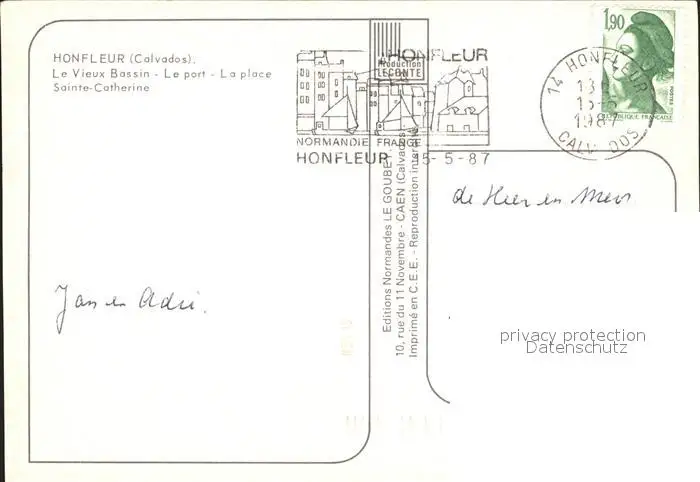 HONFLEUR (Calvados).
Le Vieux Bassin - Le port - La place
Sainte-Catherine
Production
LECONTE
HONFLEUR
NORMANDIE FRANCE
HONFLEUR 15-5-87
1,90
POSTES
REPUBLIQUE FRANCAISE
14 HONFLEUR
15-5
1987
CALVADOS
Editions Normandes LE GOUBEY
10, rue du 11 Novembre - CAEN (Calvados)
Imprimé en C.E.E. - Reproduction
de Heer en Mevr
Jan en Adri.
privacy protection
Datenschutz